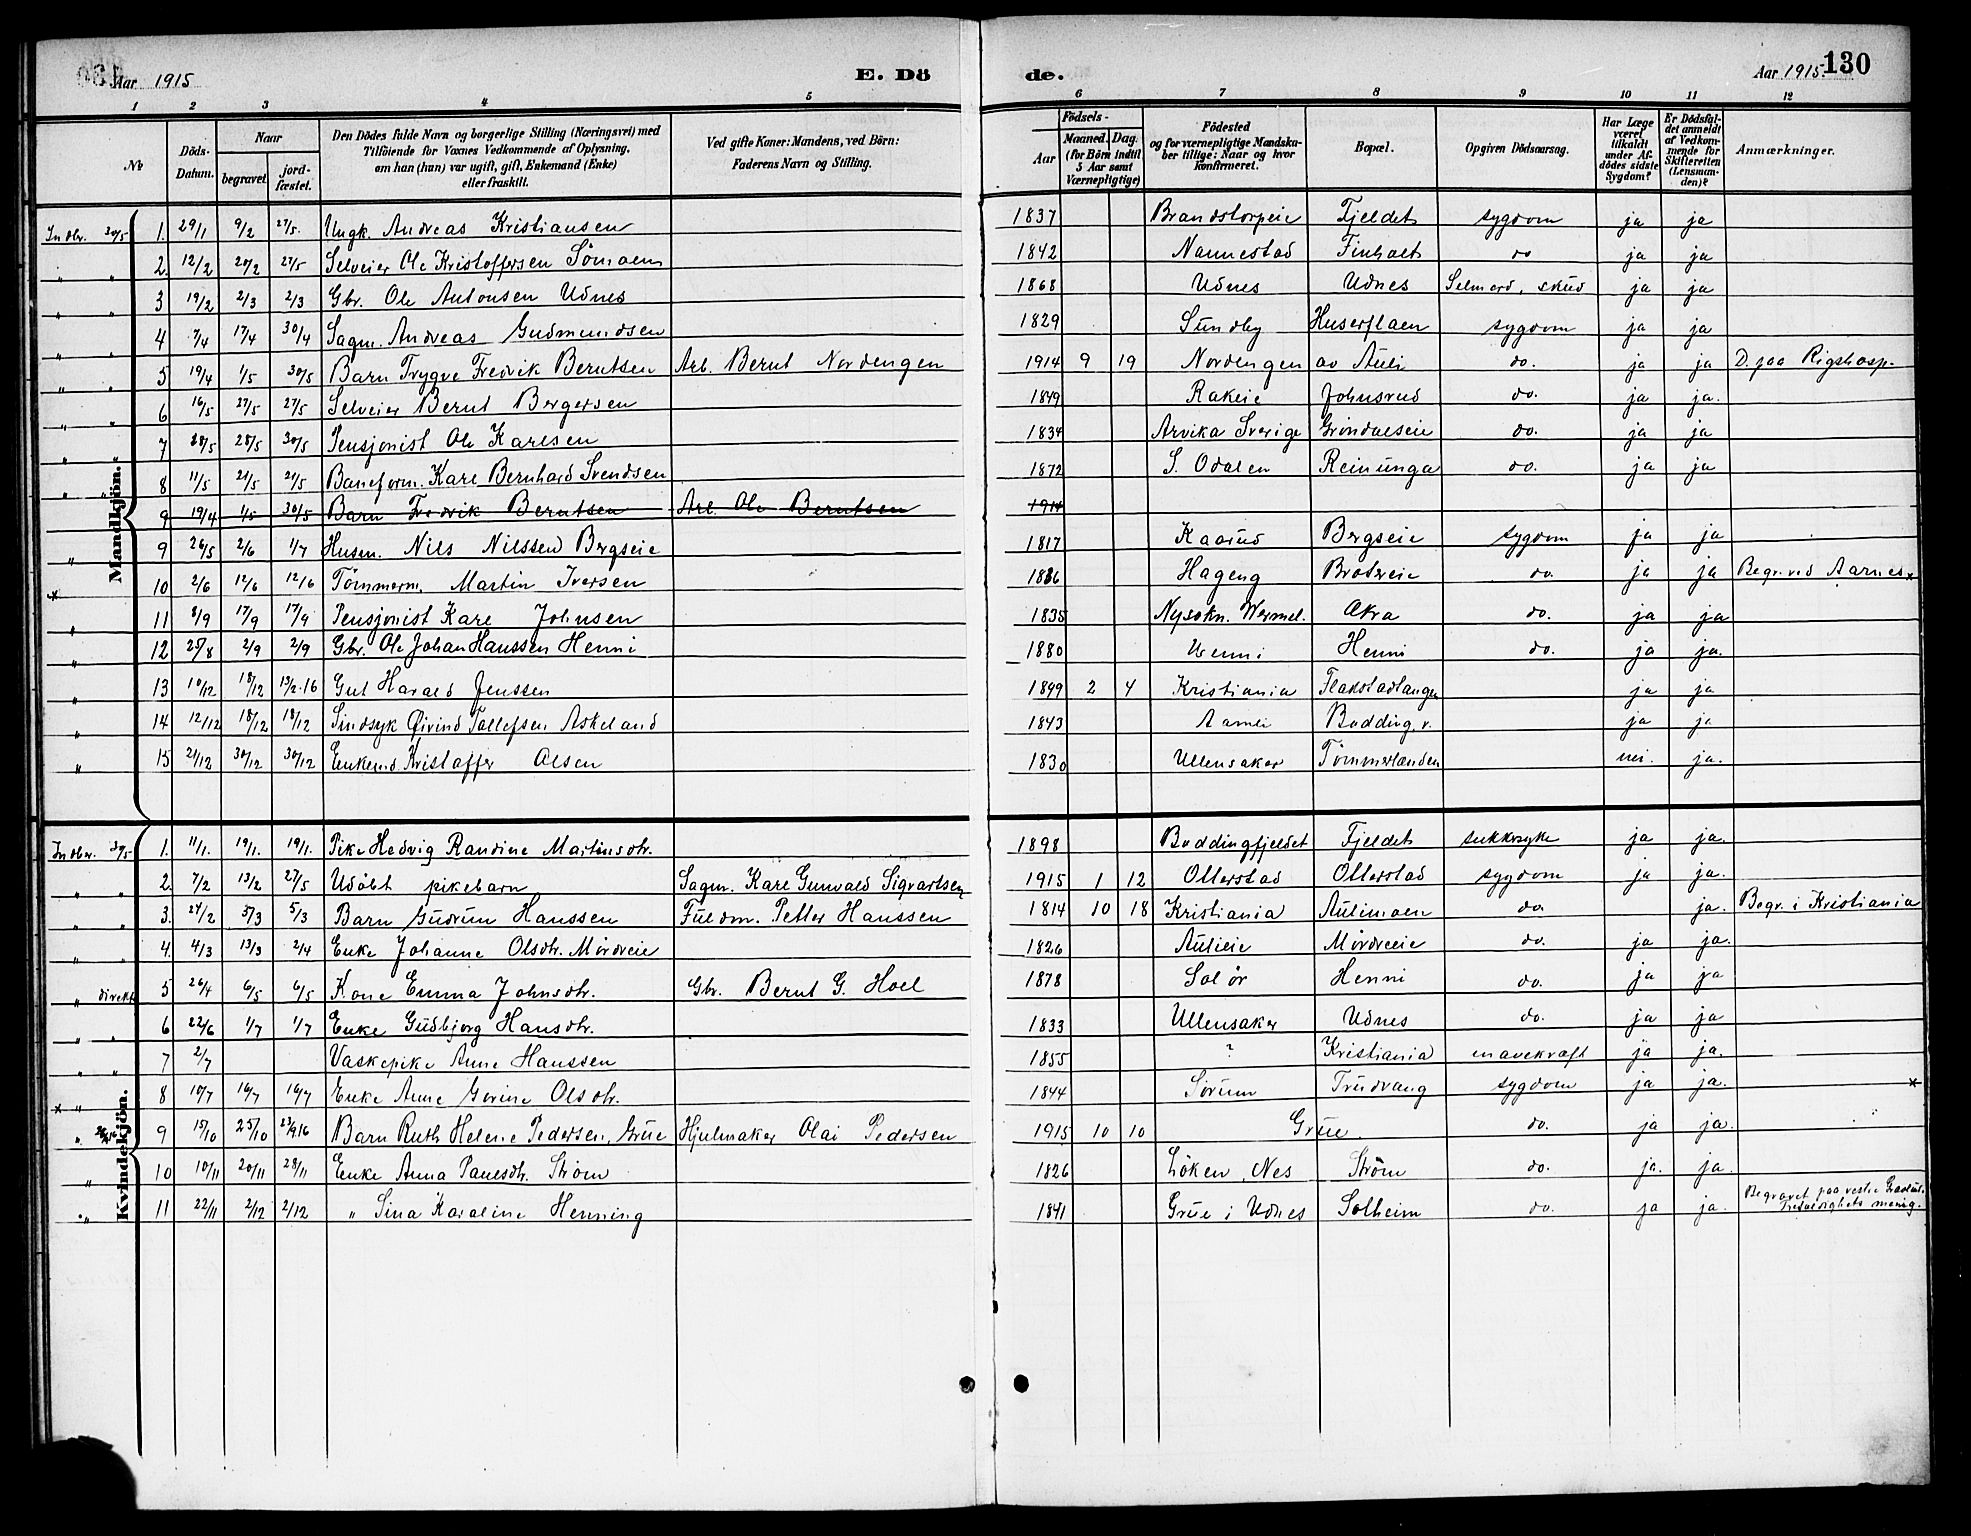 Aar 1915 E. Dö de. Aar 1915. 130
1 2 3 4 5 6 7 8 9 10 11 12
No
Döds-Datum.
Naar
begravet
jord-fæstet.
Den Dödes fulde Navn og borgerlige Stilling (Næringsvei) med
Tilföiende for Voxnes Vedkommende af Oplysning,
om han (hun) var ugift, gift, Enkemand (Enke)
eller fraskilt.
Ved gifte Koner: Mandens, ved Börn:
Faderens Navn og Stilling.
Födsels-
Aar
Maaned. Dag.
(for Börn indtil
5 Aar samt
Værnepligtige)
Födested
og for værnepligtige Mandska-
ber tillige: Naar og hvor
konfirmeret.
Bopæl.
Opgiven Dödsaarsag.
Har Læge
været
tilkaldt
under Af-
dödes sidste
Sygdom?
Er Dödsfal-
det anmeldt
af Vedkom-
mende for
Skifteretten
(Lensman-
den)?
Anmærkninger.
Mandkjön.
Indbr. 30/5 1. 29/1 9/2 27/5. Ungk. Andreas Kristiansen 1837 Brandstorpeie Fjeldet sygdom ja ja
" " 2. 12/2 20/2 27/5 Selveier Ole Kristoffersen Sömoen 1842 Nannestad Finholt do ja ja
" " 3 19/2 2/3 2/3 Gbr. Ole Antonsen Udnes 1868 Udnes Udnes Selmord, skud ja ja
" " 4 7/4 17/4 30/4 Sagm. Andreas Gudmundsen 1829 Sundby Huserflaen sygdom ja ja
" " 5 19/4 1/5 30/5 Barn Trygve Fredrik Berntsen Arb. Bernt Nordengen 1914 9 19 Nordengen av Auli do. ja ja D. paa Rigshosp.
" " 6 16/5 27/5 27/5 Selveier Bernt Bergersen 1849 Rakeie Johnsrud do. ja ja.
" " 7 20/5 28/5 30/5 Pensjonist Ole Karlsen 1834 Arvika Sverige Gröndalseie do. ja ja
" " 8 11/5 21/5 21/5 Baneform. Karl Bernhard Svendsen 1872 S. Odalen Reinunga do. ja ja
9 19/4 1/5 30/5 Barn Fredrik Berntsen Arb. Ole Berntsen 1914
" 9 26/5 2/6 1/7 Husm. Nils Nilssen Bergseie 1817 Kaarud Bergseie sygdom ja ja
x 10 2/6 12/6 12/6 Tömmerm. Martin Iversen 1836 Hageng Brotveie do. ja ja Begr. ved Aarnes x
" 11 8/9 17/9 17/9 Pensjonist Karl Johnsen 1835 Nysokn. Wermel. Akra do. ja ja
" 12 25/8 2/9 2/9 Gbr. Ole Johan Hanssen Henni 1880 Henni Henni do. ja ja.
" 13 10/12 18/12 13/2-16 Gut Harald Jenssen 1899 2 4 Kristiania Flakstadtangen ja ja
" 14 12/12 18/12 18/12 Sindsyk Øivind Tallefsen Askeland 1843 Aamli Budding, v. ja ja
" 15 21/12 30/12 30/12 Enkemd. Kristoffer Olsen 1830 Ullensaker Tömmerlanden nei. ja.
Kvindekjön.
Indber. 30/5 1. 11/1. 19/1. 19/1. Pike Hedvig Randine Martinsdtr. 1898 Buddingfjeldet Fjeldet sukkersyke ja ja.
" " 2. 7/2 13/2 27/5 Udöbt pikebarn Sagm. Karl Gunvald Sigvartsen 1915 1 12 Ollerstad Ollerstad sygdom ja ja.
" " 3. 24/2 5/3 5/3 Barn Gudrun Hanssen Fuldm. Petter Hanssen 1814 10 18 Kristiania Aulimoen do. ja. Begr. i Kristiania
" " 4. 4/3 13/3 2/4 Enke Johanne Olsdtr. Mördreie 1826 Aulieie Mördreeie do. ja ja.
" direkte 5 26/4 6/5 6/5 Kone Emma Johnsdtr. Gbr. Bernt G. Hoel 1878 Solör Henni do. ja ja
" " 6 22/6 1/7 1/7 Enke Gudbjorg Hansdtr. 1833 Ullensaker Udnes do. ja ja
" " 7 2/7 Vaskepike Anne Hanssen 1855 ? Kristiania mavekræft ja ja.
x " 8 10/7 16/7 16/7 Enke Anne Gorine Olsdtr. 1844 Sörum Trudvang sygdom ja ja. x
" 9 15/10 25/10 23/9 16 Barn Ruth Helene Pedersen, Grue Hjulmaker Olai Pedersen 1915 10 10 Grue. do. ja ja.
" 10 10/11 20/11 28/11 Enke Anna Paulsdtr. Ström 1826 Löken, Nes Ström do. ja. ja.
" 11 22/11 2/12 2/12 " Sina Karoline Henning 1841 Grue i Udnes Solheim do. ja ja. Begravet paa vestre Gravlund.